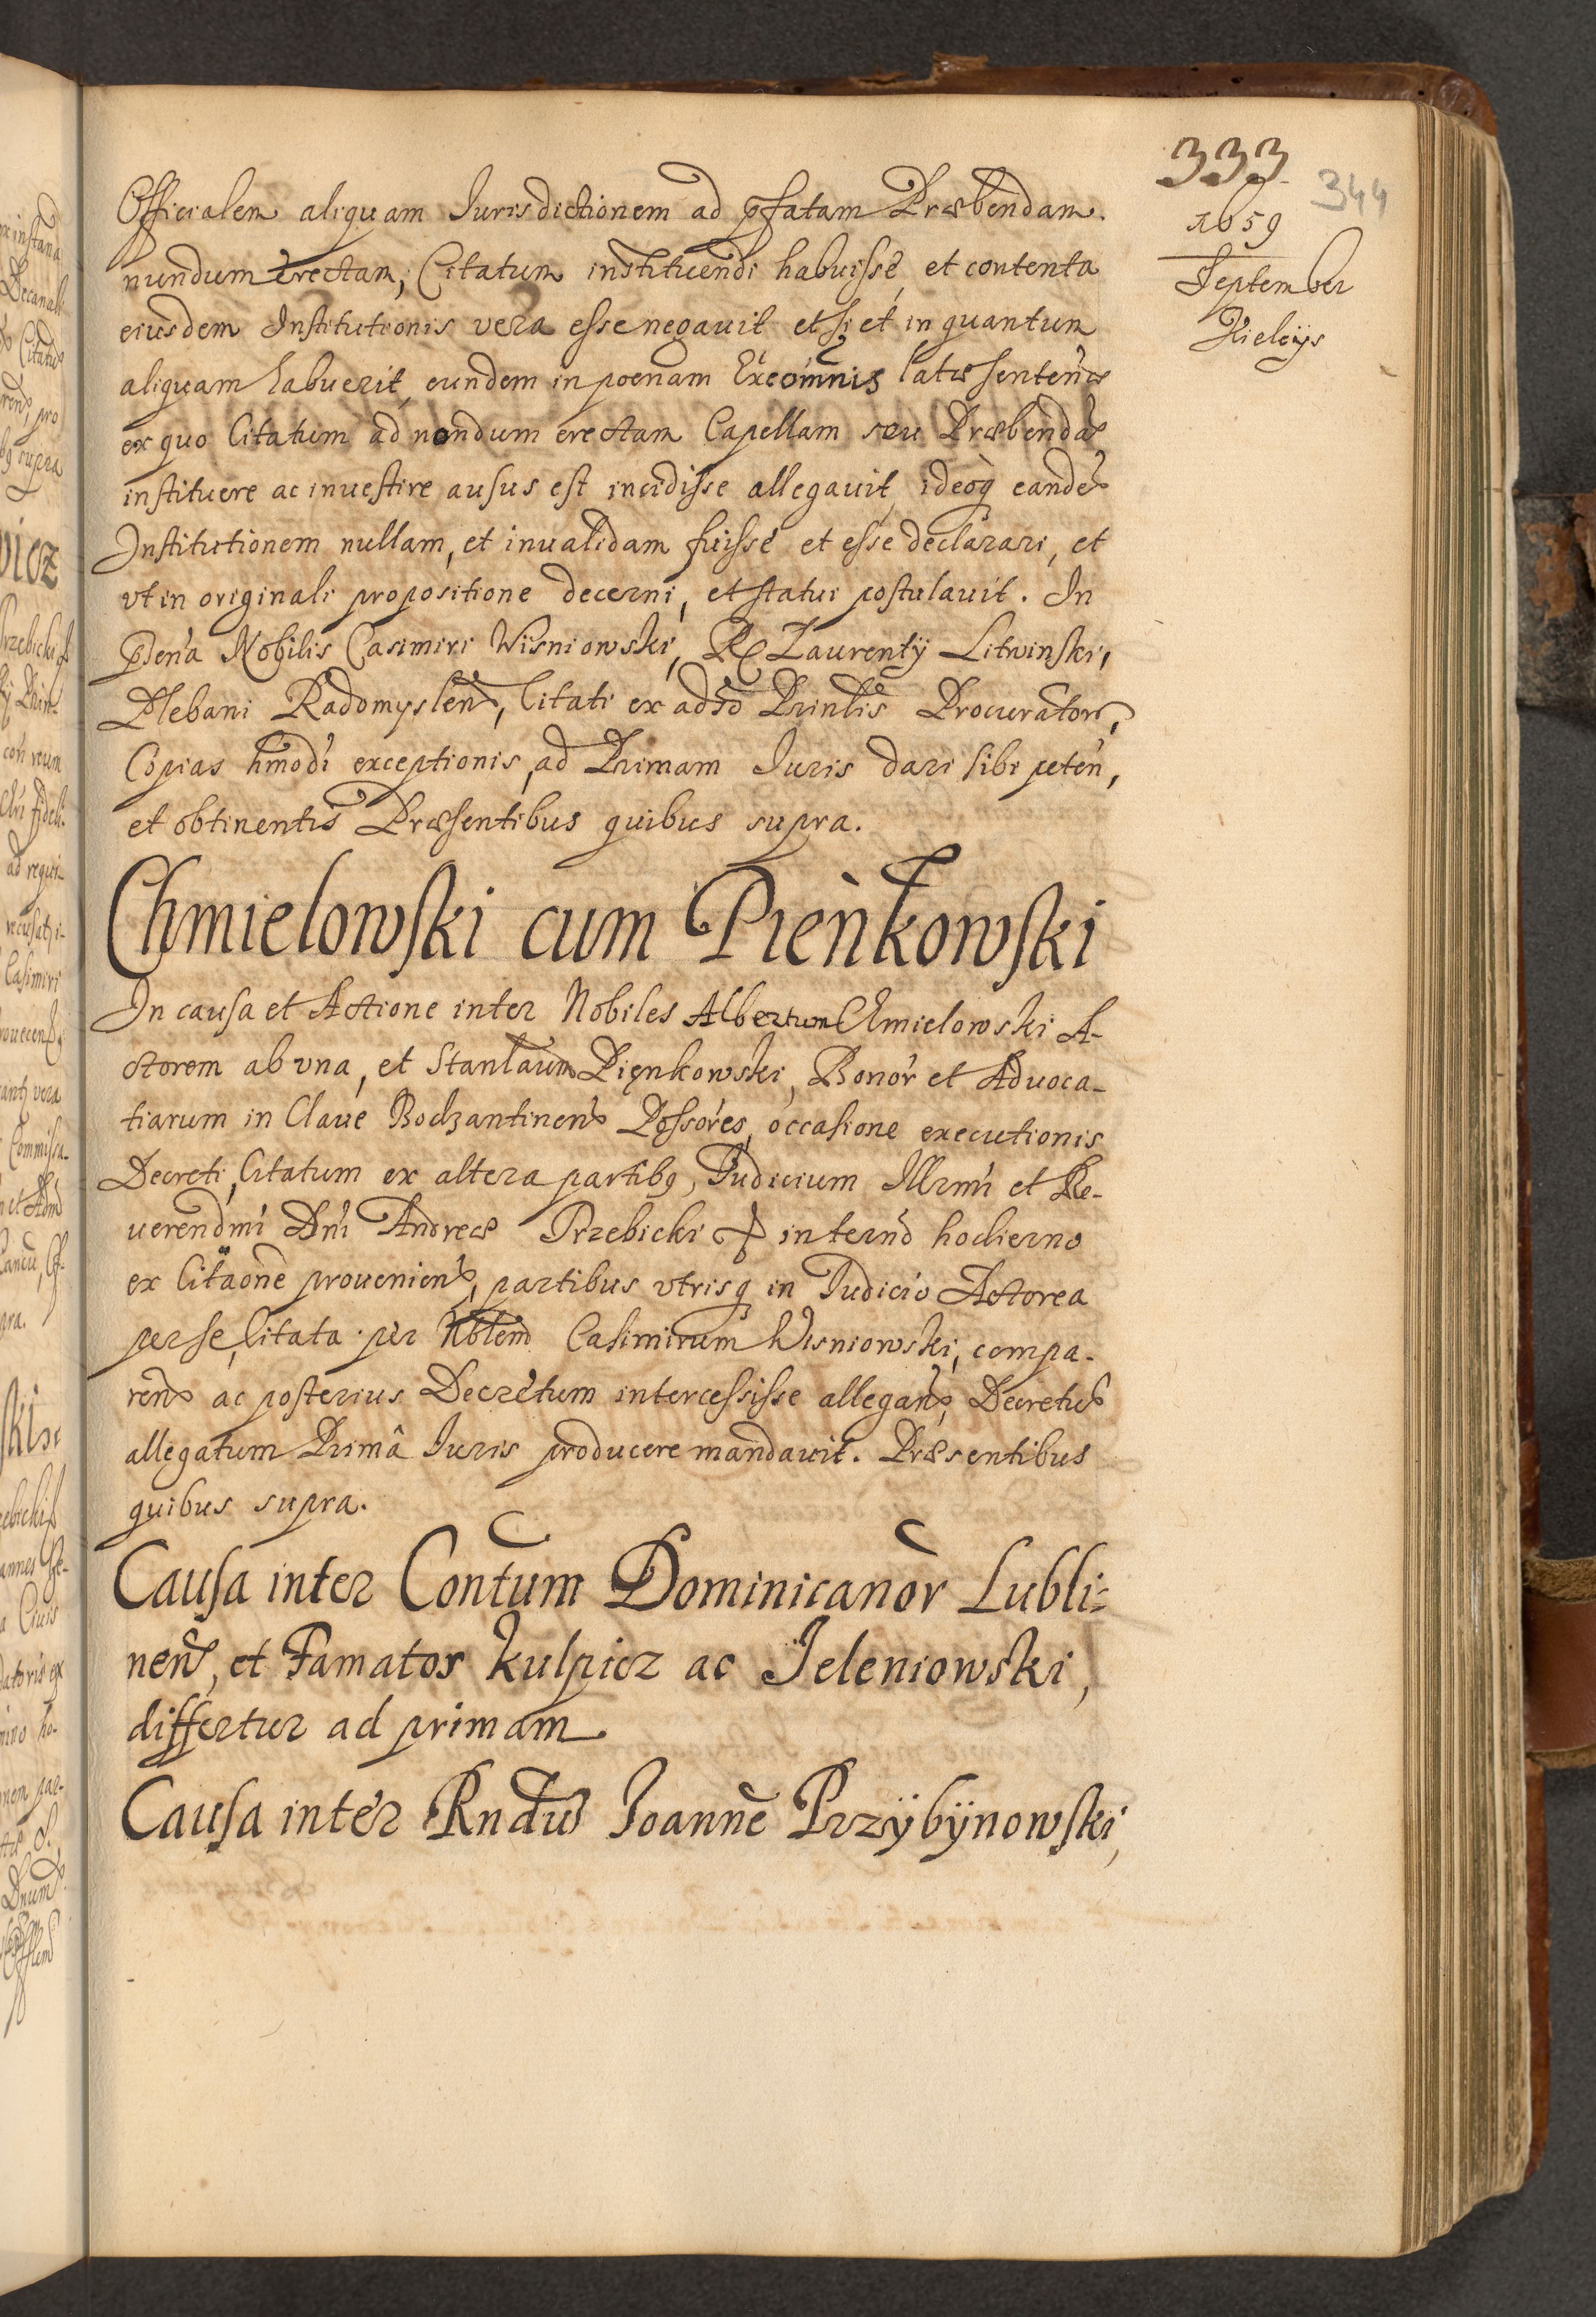 333
344
1659
September
Kielcijs
Officialem aliquam Jurisdictionem ad pfatam Præbendam.
nundum erectam, Citatum instituendi habuisse, et contenta
eiusdem Institutionis vera esse negauit et si et in quantum
aliquam habuerit, eundem in poenam Excomnis latæ sentenæ
ex quo Citatum ad nondum erectam Capellam seu Præbendã
instituere ac inuestire ausus est incidisse allegauit, ideoq eandẽ
Institutionem nullam, et inualidam fuisse et esse declarari, et
vt in originali propositione decerni, et statui postulauit. In
pdena Nobilis Casimiri Wisniowski, R Laurentÿ Litwinski,
Plebani Radomyslen, Citati ex adso Prinlis Procurator,
Copias hmodi exceptionis, ad Primam Juris dari sibi peten,
et obtinentis Præsentibus quibus supra.
Chmielowski cum Pieńkowski
In causa et Actione inter Nobiles Albertum Chmielowski A-
ctorem ab vna, et Stanlaum Pięnkowski, Bonor et Aduoca-
tiarum in Claue Bodzantinen Possores, occasione executionis
Decreti, Citatum ex altera partibq, Judicium Illrmi et Re-
uerendmi Dni Andreæ Trzebicki in termo hodierno
ex Citaone prouenien, partibus vtrisq in Judicio Actorea
per se, Citata per Nblem Casimirum Wisniowski, compa-
ren ac posterius Decretum intercessisse allegan, Decretũ
allegatum Primâ Juris producere mandauit. Præsentibus
quibus supra.
Causa inter Contum Dominicanor Lubli-
nen, et Famatos Kulpicz ac Jeleniowski,
differtur ad primam
Causa inter Rndũ Joannẽ Przÿbÿnowski,